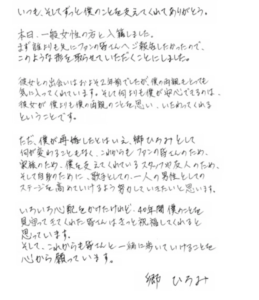 いつも、そしてずっと僕のことを支えてくれてありがとう。
本日、一般女性の方と入籍しました。
まず誰よりも先にファンの皆さんへご報告したかったので、
このような形を取らせていただくことにしました。
彼女との出会いはおよそ2年前でしたが、僕の両親もとても
気に入ってくれています。そして何よりも僕が安心できるのは、
彼女が僕よりも僕の両親のことを思い、いたわれてくれる
ということです。
ただ、僕が再婚したとはいえ、郷ひろみとして
何が変わることもなく、これからもファンの皆さんのため、
家族のため、僕を支えてくれているスタッフや友人のため、
そして自分のために、歌手としての、一人の男性としての
ステージを高めていけるよう努力していきたいと思います。
いろいろ心配をかけたけれど、40年間僕のことを
見守ってきてくれた皆さんはきっと祝福してくれると
思っています。
そして、これからも皆さんと一緒に歩いていけることを
心から願っています。
郷 ひろみ